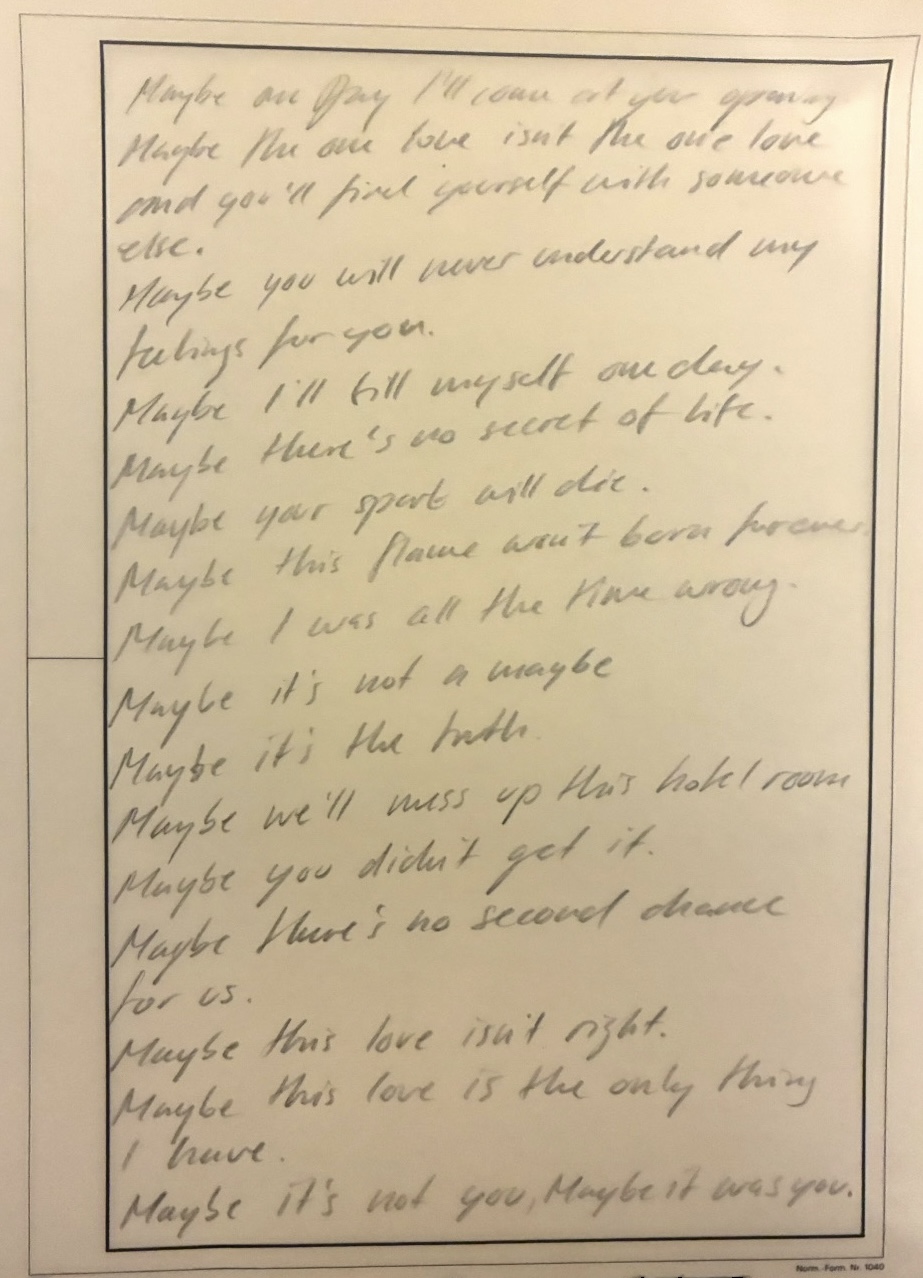 Maybe one Day I'll come at your opening
Maybe the one love isn't the one love
and you'll find yourself with someone
else.
Maybe you will never understand my
feelings for you.
Maybe I'll kill myself one day.
Maybe there's no secret of life.
Maybe your spark will die.
Maybe this flame won't born forever.
Maybe I was all the time wrong.
Maybe it's not a maybe
Maybe it's the truth.
Maybe we'll mess up this hotel room
Maybe you didn't get it.
Maybe there's no second chance
for us.
Maybe this love isn't right.
Maybe this love is the only thing
I have.
Maybe it's not you, Maybe it was you.
Norm.-Form. Nr. 1040